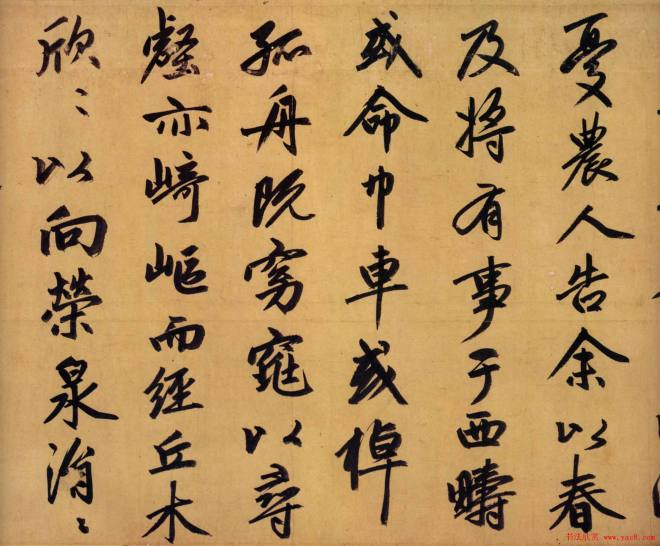 憂農人告余以春
及將有事于西疇
或命巾車或棹
孤舟既窈窕以尋
壑亦崎嶇而經丘木
欣〻以向榮泉涓〻
书法欣赏 www.yac8.com